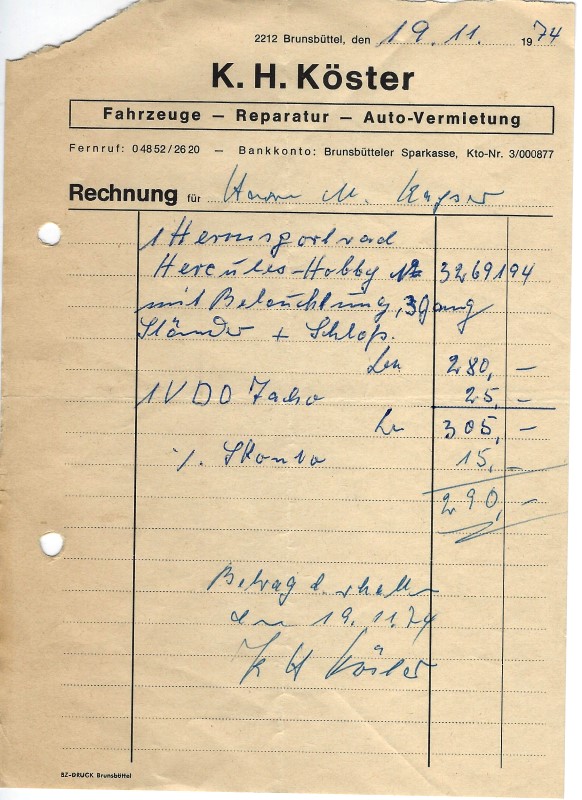 2212 Brunsbüttel, den 19. 11. 1974
K. H. Köster
Fahrzeuge — Reparatur — Auto-Vermietung
Fernruf: 0 48 52 / 26 20 — Bankkonto: Brunsbütteler Sparkasse, Kto-Nr. 3/000877
Rechnung für Herrn M. Kayser
1 Herrensportrad
Hercules-Hobby Nr 3269194
mit Beleuchtung, 3gang
Ständer + Schloß.
280,—
1 VDO Tacho 25,—
305,—
./. Skonto 15,—
290,—
Betrag d. erhalten
den 19.11.74
K H Köster
BZ-DRUCK Brunsbüttel